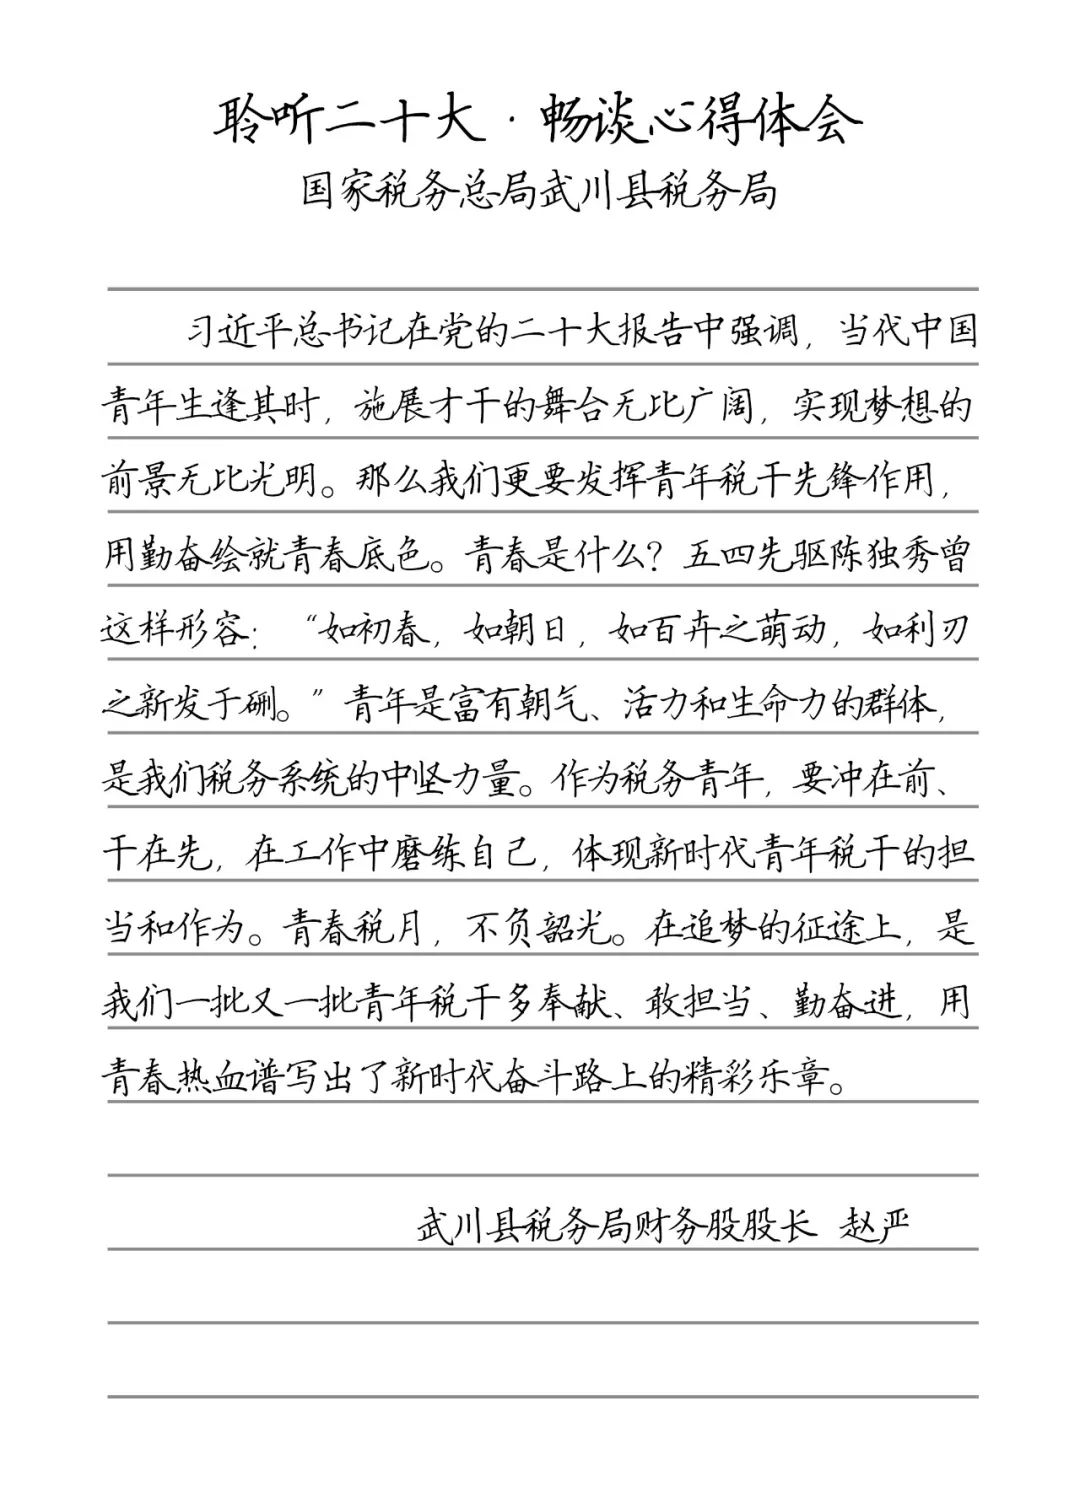 聆听二十大·畅谈心得体会
国家税务总局武川县税务局
习近平总书记在党的二十大报告中强调，当代中国
青年生逢其时，施展才干的舞台无比广阔，实现梦想的
前景无比光明。那么我们更要发挥青年税干先锋作用，
用勤奋绘就青春底色。青春是什么？五四先驱陈独秀曾
这样形容：“如初春，如朝日，如百卉之萌动，如利刃
之新发于硎。”青年是富有朝气、活力和生命力的群体，
是我们税务系统的中坚力量。作为税务青年，要冲在前、
干在先，在工作中磨练自己，体现新时代青年税干的担
当和作为。青春税月，不负韶光。在追梦的征途上，是
我们一批又一批青年税干多奉献、敢担当、勤奋进，用
青春热血谱写出了新时代奋斗路上的精彩乐章。
武川县税务局财务股股长 赵严